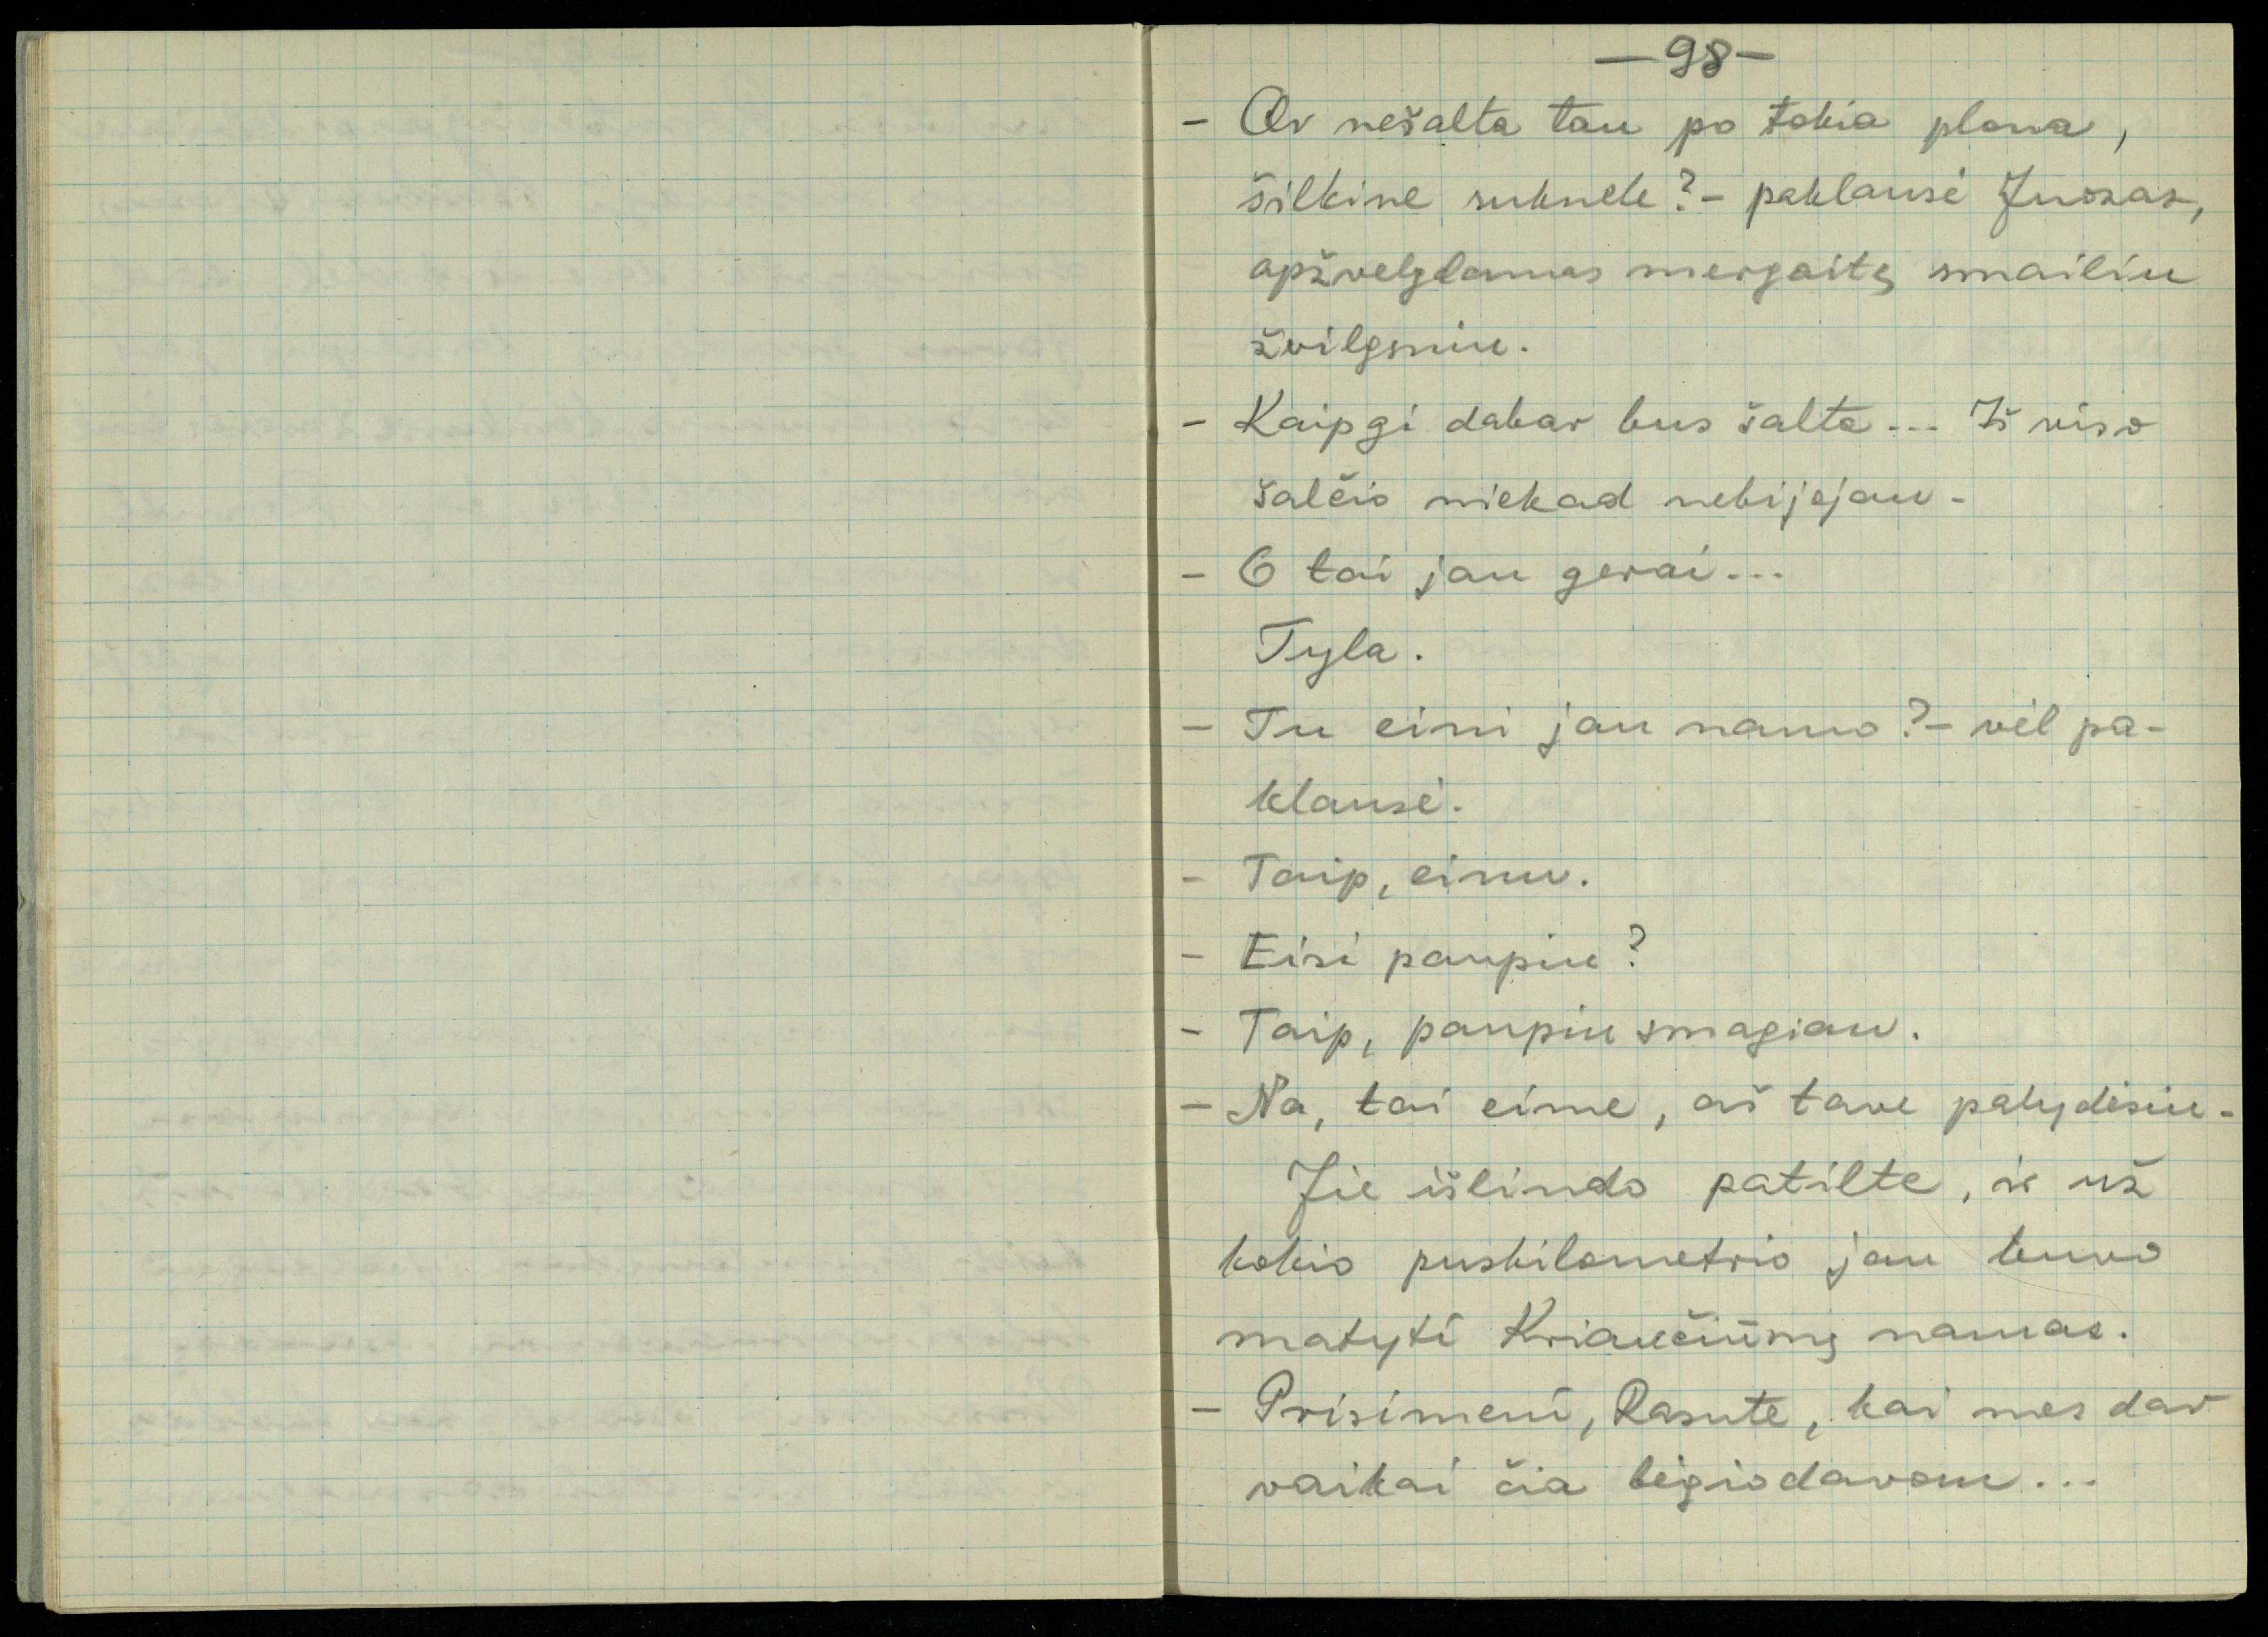 — 98 —
- Ar nešalta tau po tokia plona,
šilkine suknele? - paklausė Juozas,
apžvelgdamas mergaitę smailiu
žvilgsniu.
- Kaipgi dabar bus šalta... Iš viso
šalčio niekad nebijojau.
- O tai jau gerai...
Tyla.
- Tu eini jau namo? - vėl pa-
klausė.
- Taip, einu.
- Eisi paupiu?
- Taip, paupiu smagiau.
- Na, tai eime, aš tave palydėsiu.
Jie išlindo patilte, ir už
kokio puskilometrio jau buvo
matyti Kriaučiūnų namas.
- Prisimeni, Rasute, kai mes dar
vaikai čia bėgiodavom...